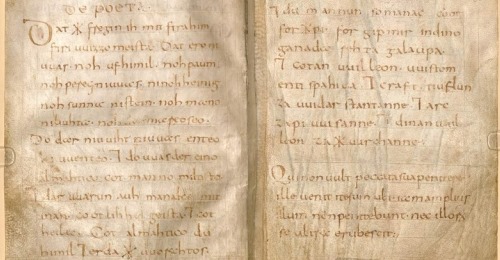 DE POETA
Dat * fregin ih mit firahim
firi uuizzo meista. Dat ero ni
uuas. noh ufhimil. noh paum
noh pereg ni uuas. ninohheinig
noh sunna nistein. noh mano
niliuhta. noh der mareoseo.
Do dar niuuiht niuuas enteo
ni uuenteo. ⁊ do uuas der eino
almahtico cot manno milti
⁊ dar uuarun auh manake mit
inan cootlihhe geista. ⁊ cot
heilac. Cot almahtico du
himil ⁊ erda * uuorahtos.
⁊ du mannun so manac coot
for * pi. for gip mir indino
ganada rehta galaupa.
⁊ cotan uuilleon. uuistom
enti spahida. ⁊ craft. tiuflun
za uuidar stantanne. ⁊ arc
zapi uuisanne. ⁊ dinan uuil
leon za * uurchanne.
Qui non vult peccata sua penitere
ille venit iterum ubi iam amplius
illum non penitebunt. nec illorum
se ultra erubescit.